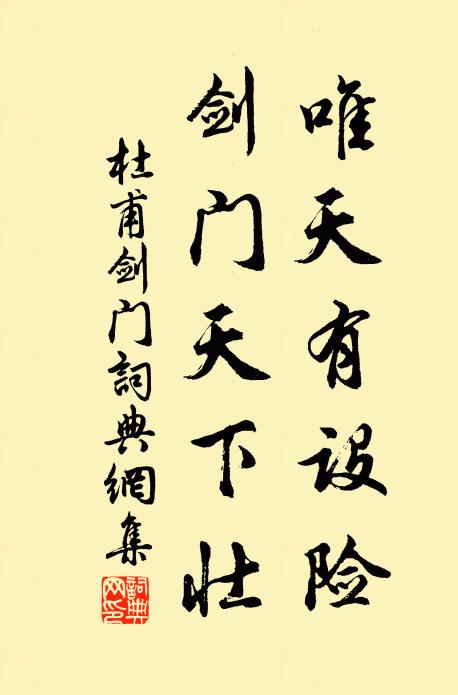 唯天有設险
剑门天下壮
杜甫剑门詞典網集
詞典網印